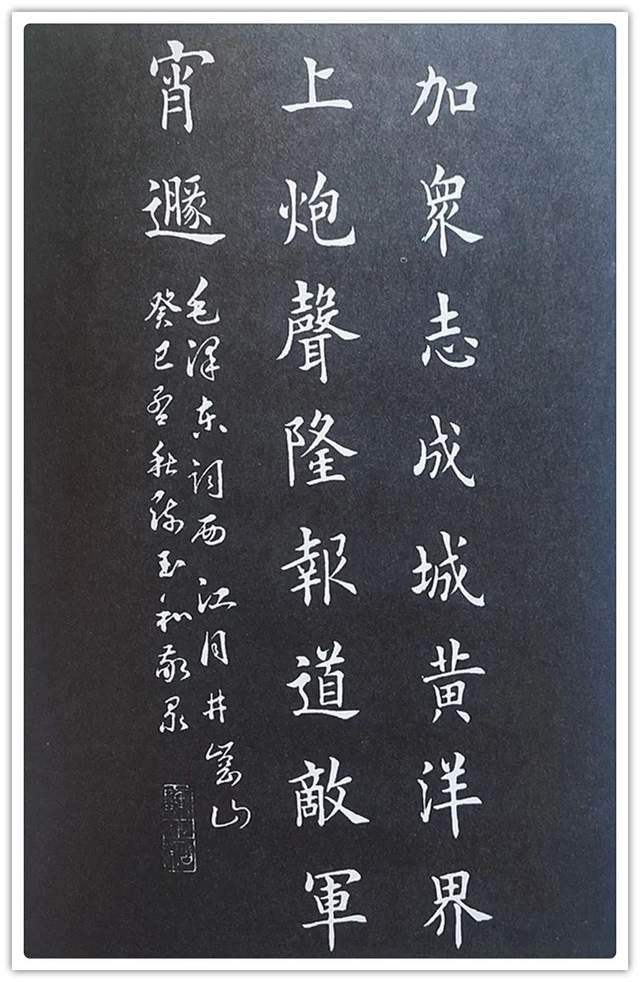 加眾志成城黄洋界
上炮聲隆報道敵軍
宵遯
毛泽东词西江月井崗山
癸巳孟秋陈玉和敬录